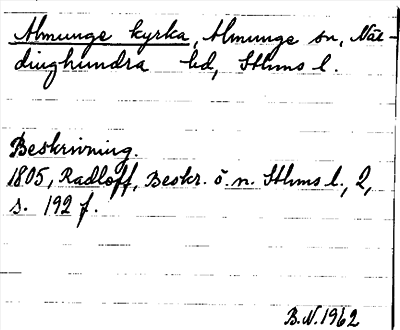 Almunge kyrka, Almunge sn, När-
dinghundra hd, Sthms l.
Beskrivning.
1805, Radloff, Beskr. ö. n. Sthms l., 2,
s. 192 f.
B.N. 1962